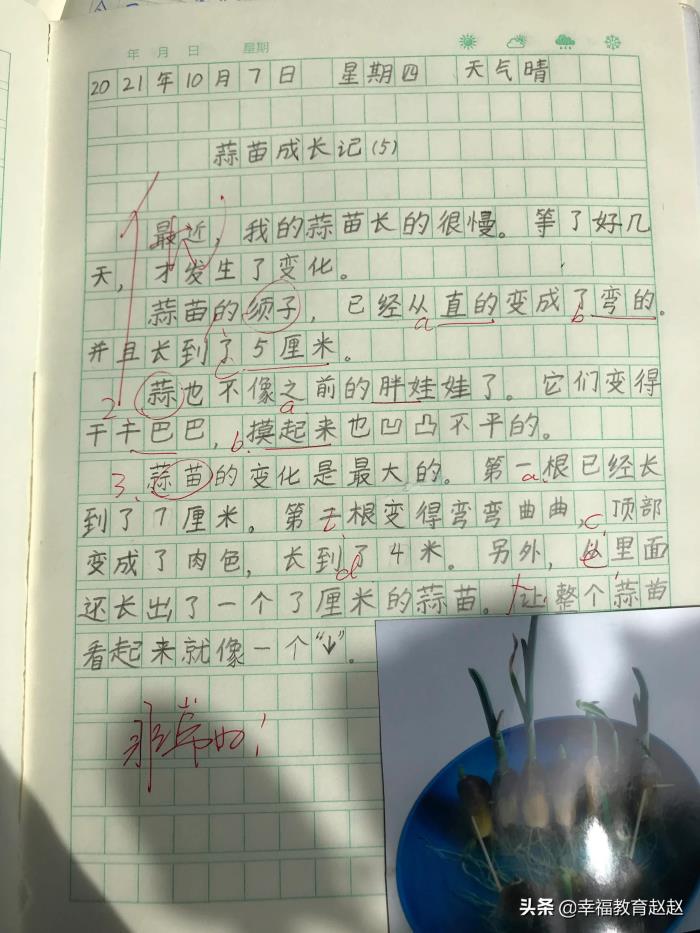 年 月 日 星期
2021年10月7日 星期四 天气晴
蒜苗成长记(5)
最近，我的蒜苗长的很慢。等了好几
天，才发生了变化。
蒜苗的须子，已经从直的变成了弯的。
a b
并且长到了5厘米。
c
2 蒜也不像之前的胖娃娃了。它们变得
a
干干巴巴，摸起来也凹凸不平的。
b
3. 蒜苗的变化是最大的。第一根已经长
a
到了7厘米。第二根变得弯弯曲曲，顶部
c
变成了肉色，长到了4米。另外，里面
d
还长出了一个了厘米的蒜苗。让整个蒜苗
看起来就像一个“↓”。
非常好！
头条 @幸福教育赵赵